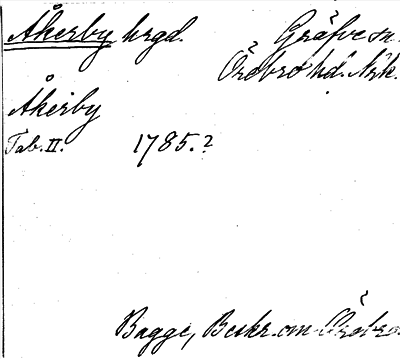 Åkerby hrgd. Gräfve sn.
Örebro hd. Nrk.
Åkerby
Tab. II. 1785.?
Bagge, Beskr. om Örebro